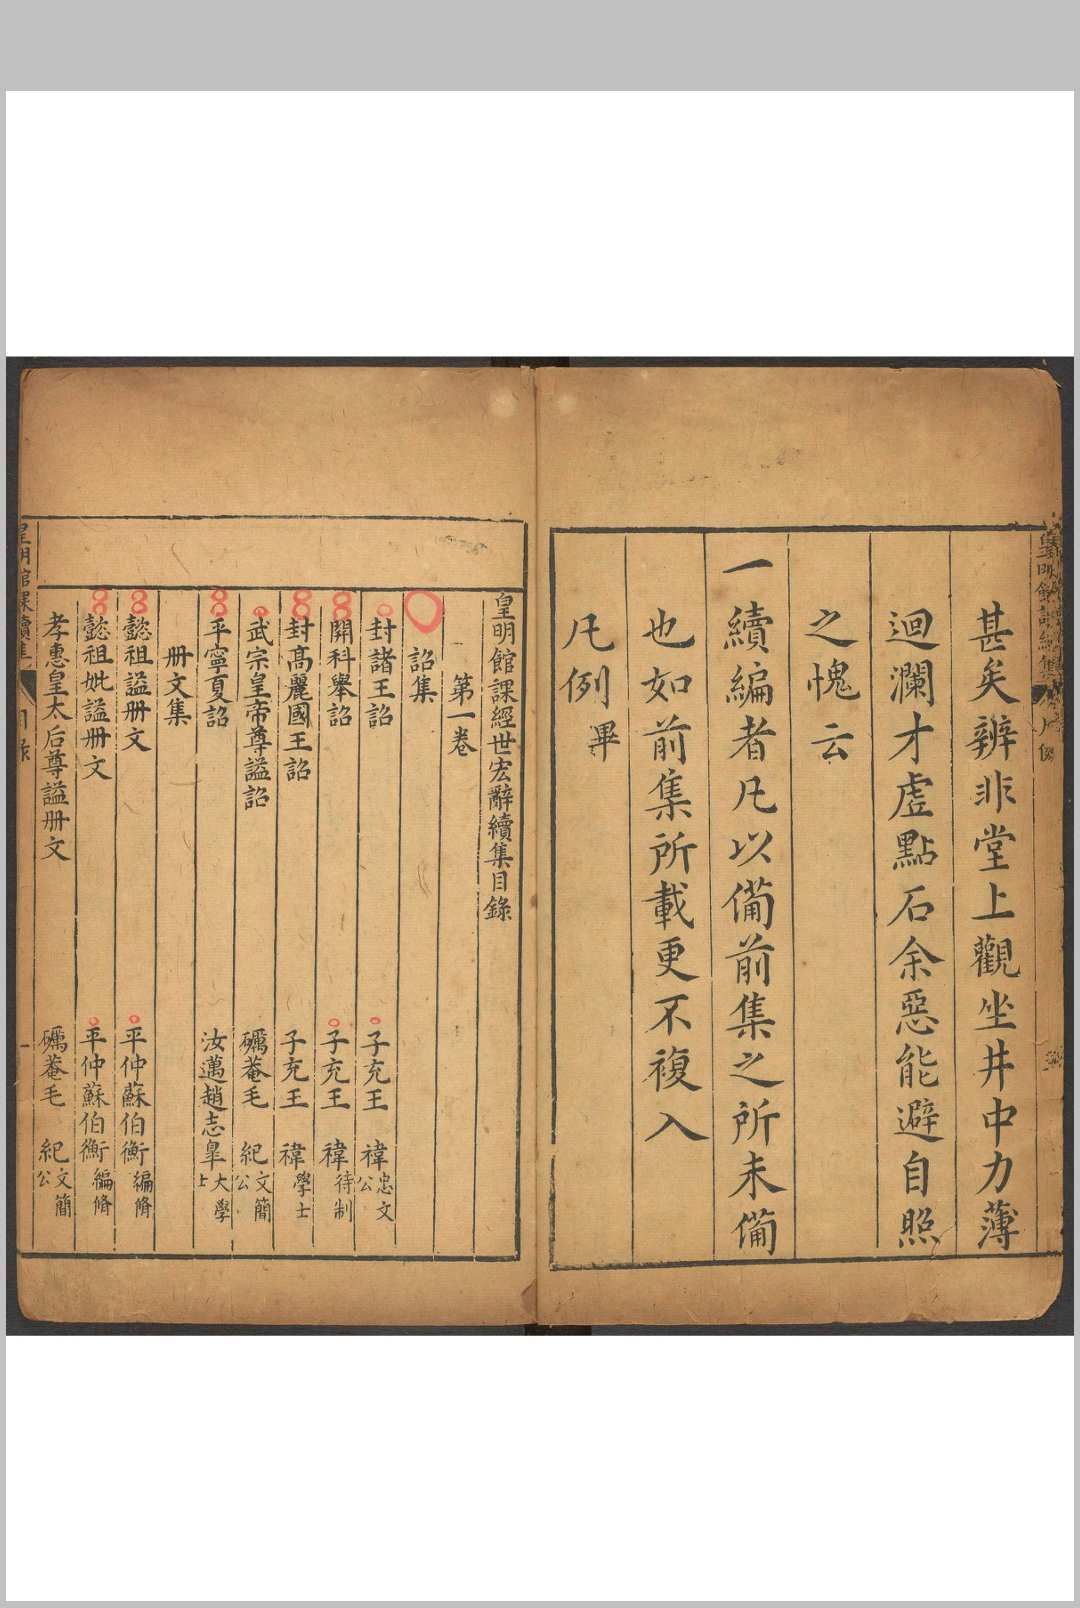 甚矣辨非堂上觀坐井中力薄
迴瀾才虛點石余惡能避自照
之愧云
一續編者凡以備前集之所未備
也如前集所載更不複入
凡例畢
皇明館課經世宏辭續集目錄
第一卷
詔集
封諸王詔 子充王 禕忠文公
開科舉詔 子充王 禕待制
封高麗國王詔 子充王 禕學士
武宗皇帝尊謚詔 礪菴毛 紀文簡公
平寧夏詔 汝邁趙志皐大學士
冊文集
懿祖謚冊文 平仲蘇伯衡編脩
懿祖妣謚冊文 平仲蘇伯衡編脩
孝惠皇太后尊謚冊文 礪菴毛 紀文簡公
皇明館課續集 目錄 一